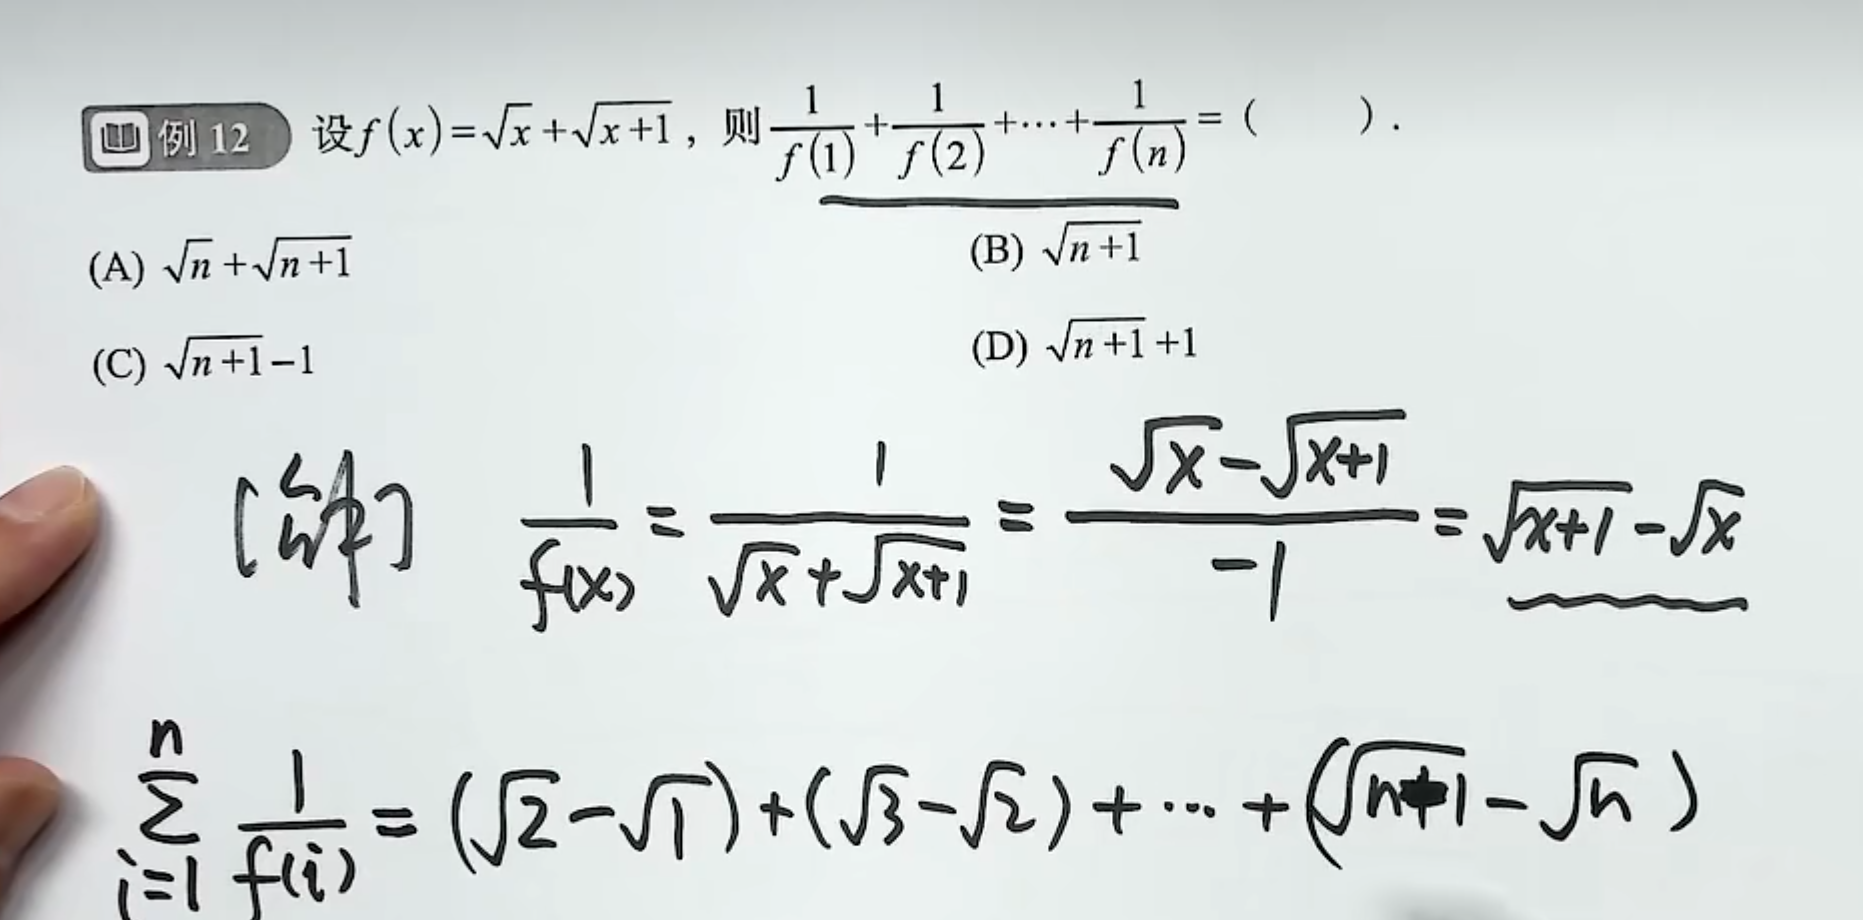 例 12 设f(x)=√x+√(x+1), 则 1/f(1)+1/f(2)+⋯+1/f(n)=( ).
(A) √n+√(n+1) (B) √(n+1)
(C) √(n+1)-1 (D) √(n+1)+1
[解] 1/f(x) = 1/(√x+√(x+1)) = (√x-√(x+1))/(-1) = √(x+1)-√x
∑_{i=1}^{n} 1/f(i) = (√2-√1)+(√3-√2)+⋯+(√(n+1)-√n)